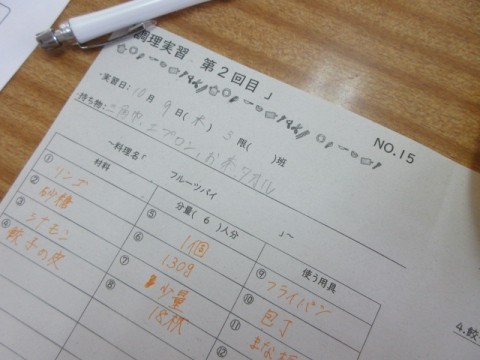 調理実習 第2回目」
NO.15
・実習日:10月9日(木)3限( )班
・持ち物:三角巾、エプロン、お茶、タオル
~料理名「 フルーツパイ 」~
材料 分量(6)人分 使う用具
① リンゴ ⑤ 1個 ⑨ フライパン
② 砂糖 ⑥ 130g ⑩ 包丁
③ シナモン ⑦ 少量 ⑪ まな板
④ 餃子の皮 ⑧ 18枚 ⑫
4.餃